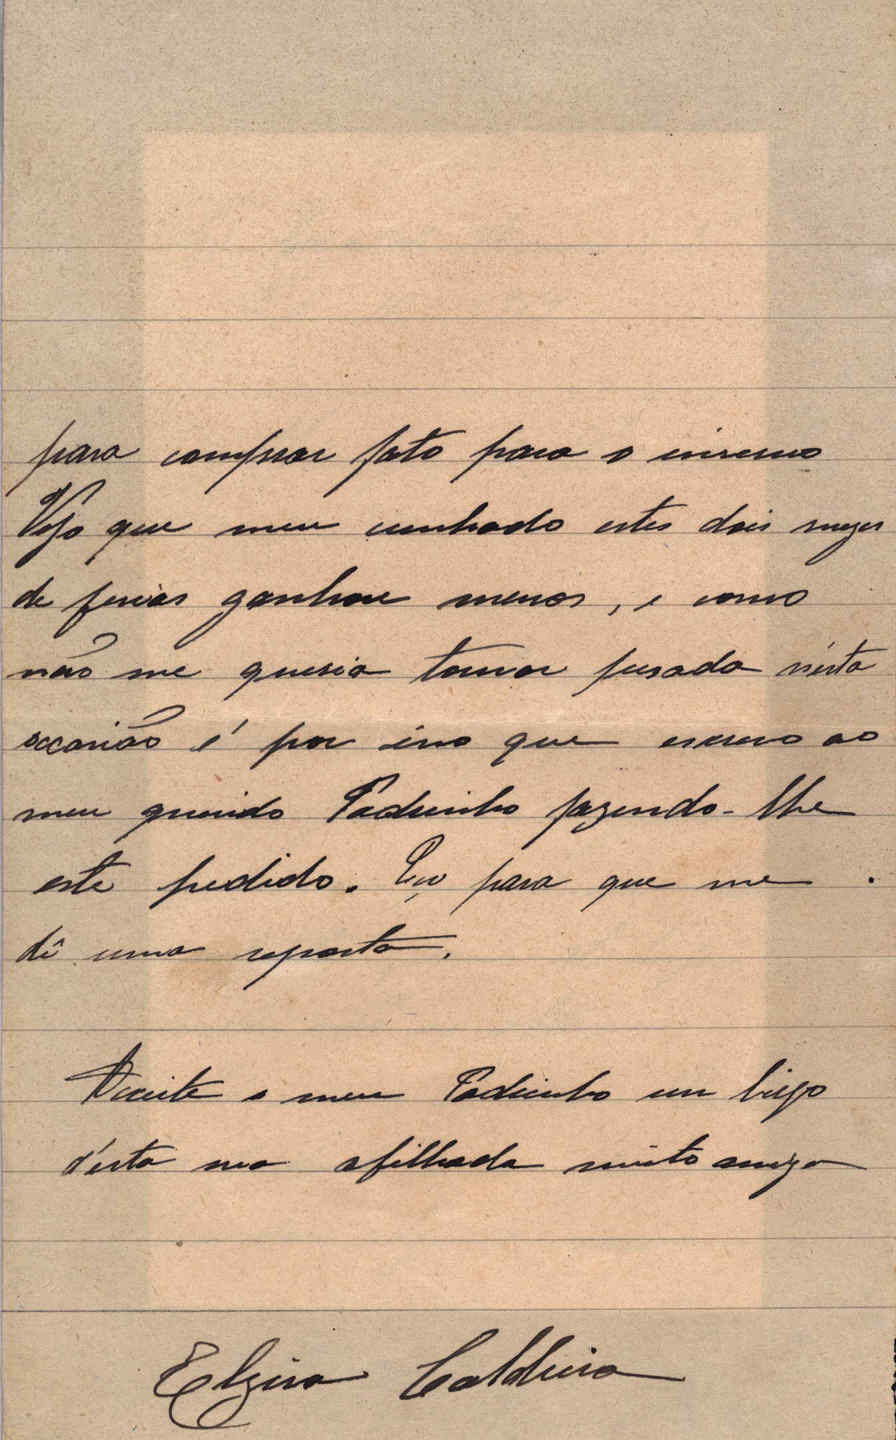 para comprar fato para o inverno
Vejo que meu cunhado estes dois mezes
de ferias ganhou menos, e como
não me queria tornar pesada n'esta
occasião é por isso que escrevo ao
meu querido Padrinho fazendo-lhe
este pedido. Peço para que me
dê uma reposta.
Acceite o meu Padrinho um beijo
d'esta sua afilhada muito amiga
Elzira Caldeira